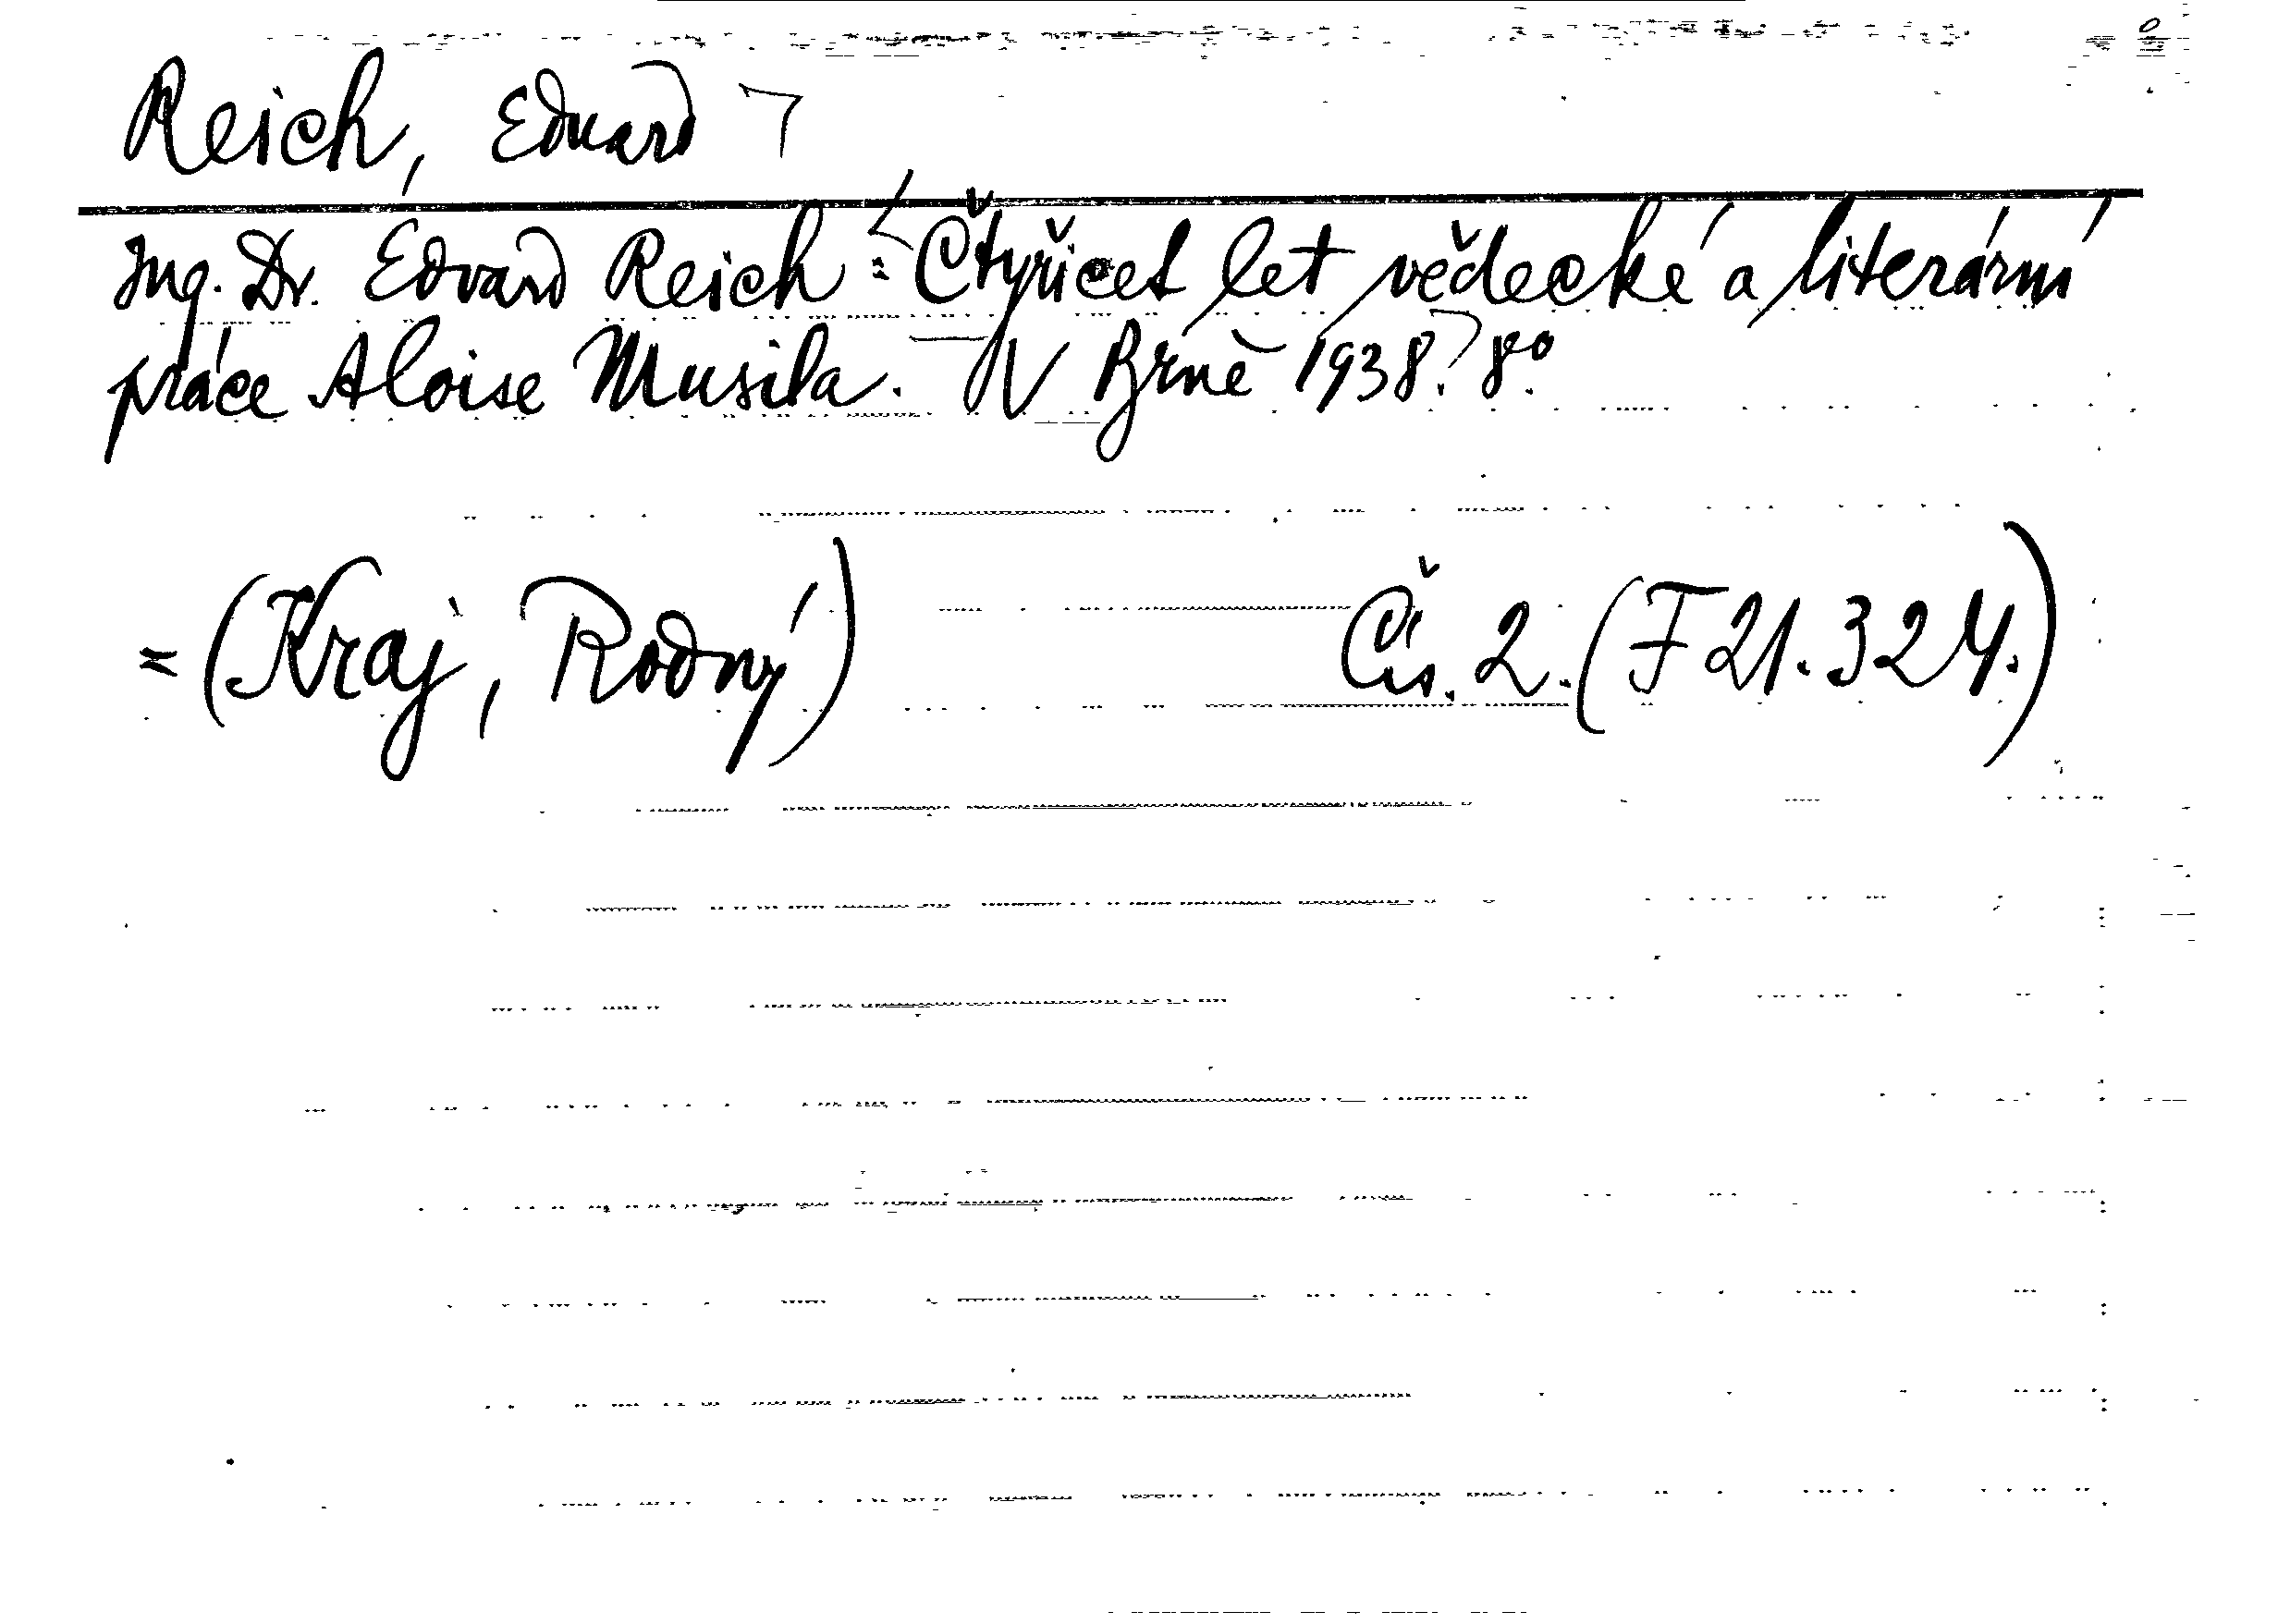 Reich, Eduard ¬
Ing. Dr. Edvard Reich: Čtyřicet let vědecké a literární
práce Aloise Musila. V Brně 1938? 8º.
= (Kraj, Rodný) Čís. 2. (F 21.324.)